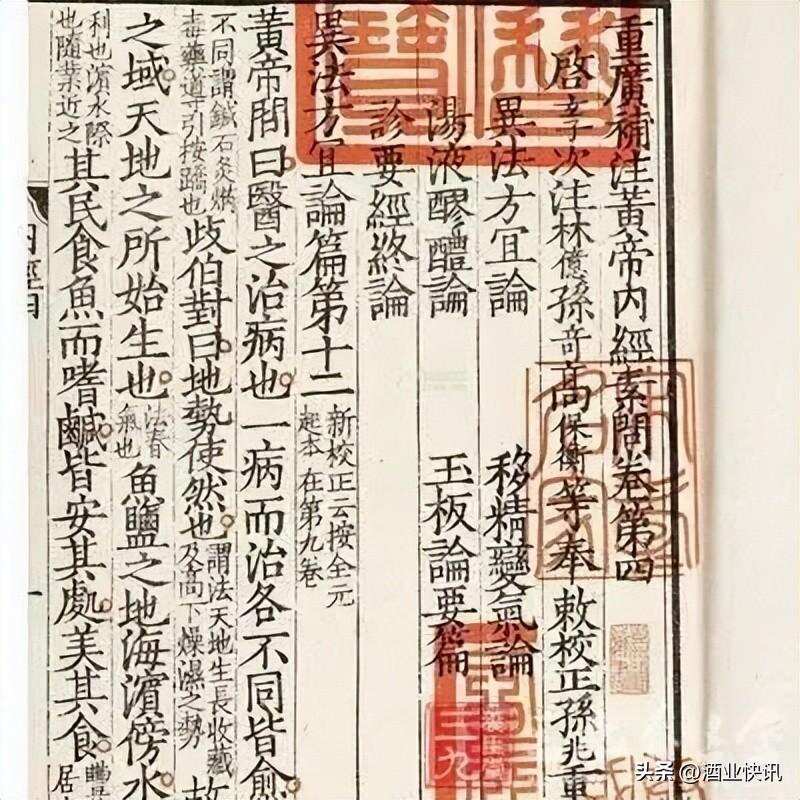 重廣補注黃帝內經素問卷第四
啓玄子次注林億孫竒髙保衡等奉敕校正孫兆重
異法方宜論　移精變氣論
湯液醪醴論　玉板論要篇
診要經終論
異法方宜論篇第十二 新校正云按全元起本在第九卷
黃帝問曰醫之治病也一病而治各不同皆愈
不同謂鍼石灸焫毒藥導引按蹻也 歧伯對曰地勢使然也 謂法天地生長收藏及高下燥濕之勢 故
之域天地之所始生也 法春氣也 魚鹽之地海濱傍水
利也濱水際也隨業近之 其民食魚而嗜鹹皆安其處美其食
头条 @酒业快讯